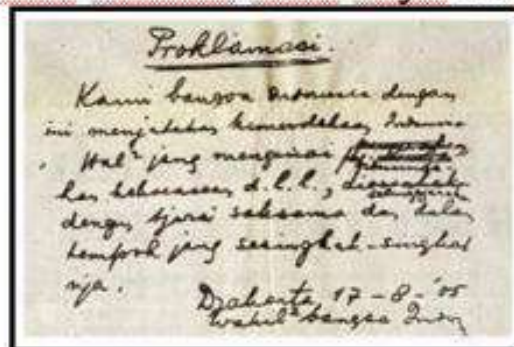 Proklamasi.
Kami bangsa Indonesia dengan
ini menjatakan kemerdekaan Indonesia
Hal² jang mengenai
kan kekoeasaan d.l.l.,
dengan tjara saksama dan dalam
tempoh jang sesingkat-singkat
nja.
Djakarta, 17-8-'05
Wakil² bangsa Indon